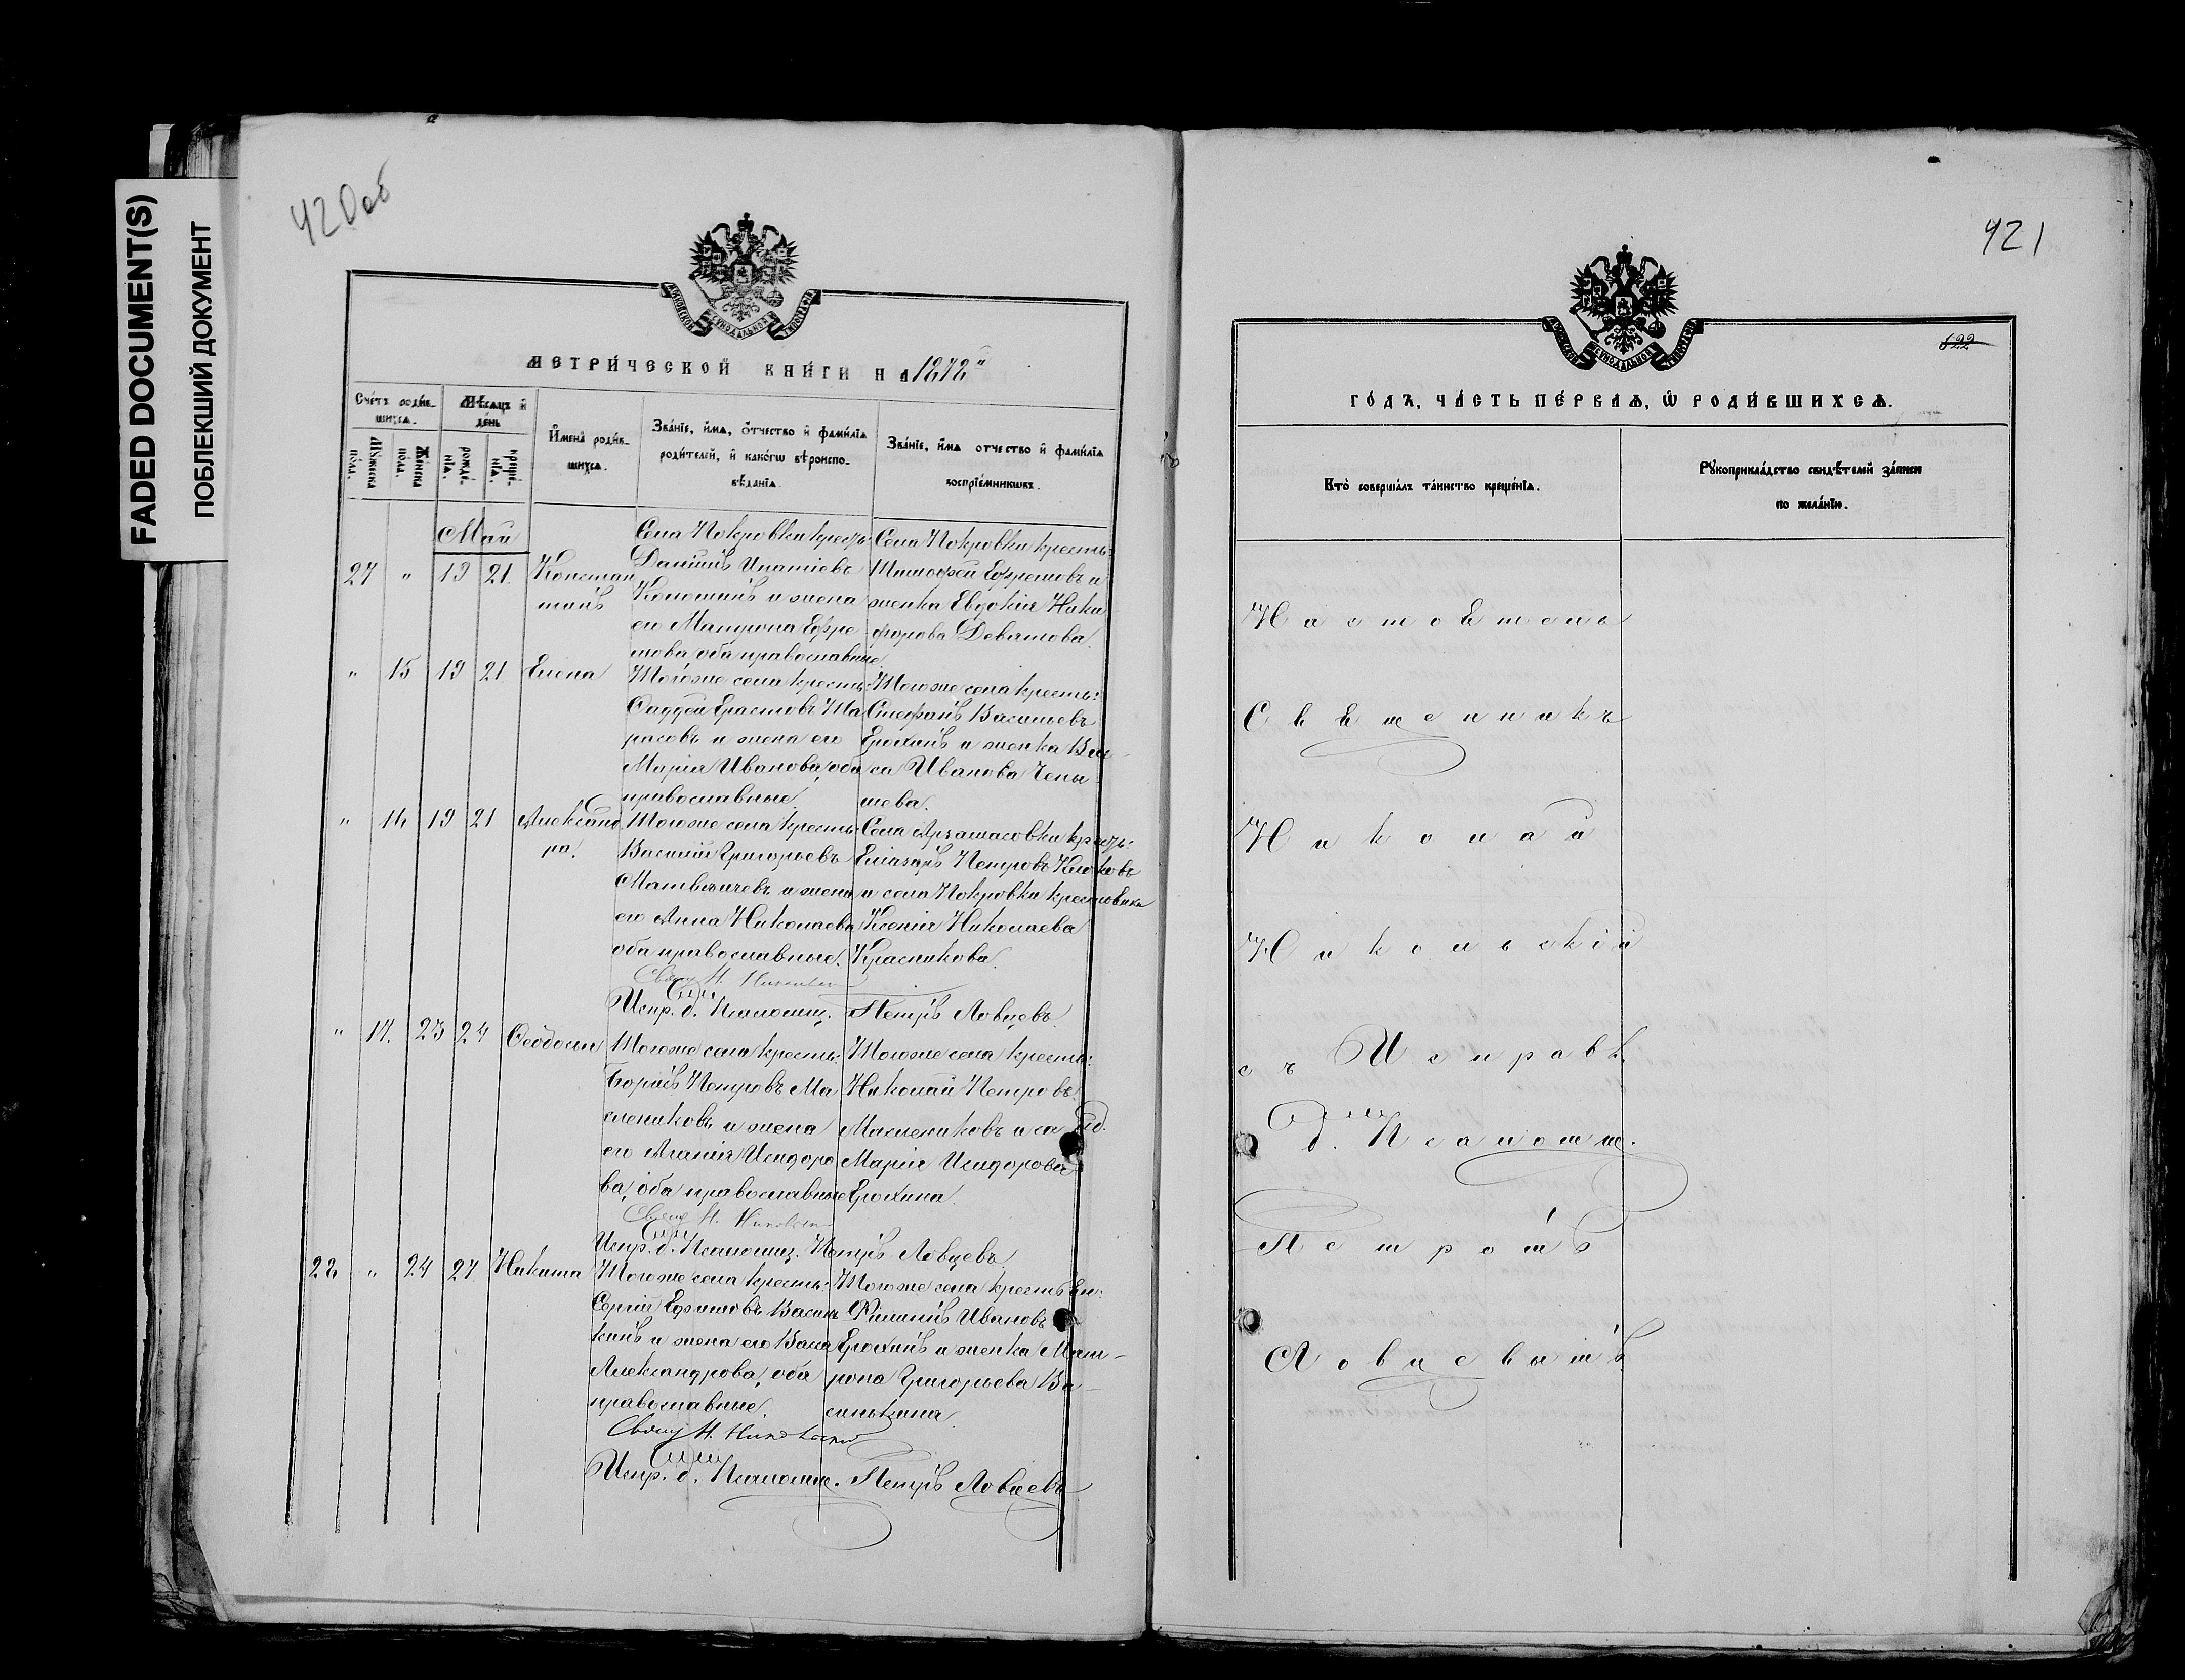 FADED DOCUMENT(S)
ПОБЛЕКШИЙ ДОКУМЕНТ
420об
МЕТРИ́ЧЕСКОЙ КНИ́ГИ НА 1872й
Сче́тъ роди́вшихсѧ.
Мꙋ́жеска по́ла.
Же́нска по́ла.
Мѣ́сѧцъ и де́нь
рожде́нїѧ.
креще́нїѧ.
И҆мена̀ роди́вшихсѧ.
Зва́нїе, и҆́мѧ, ѻ҆́тчество и҆ фамѝлїѧ роди́телей, и҆ како́гѡ вѣроисповѣ́данїѧ.
Зва́нїе, и҆́мѧ ѻтчество и҆ фамѝлїѧ воспрїе́мникѡвъ.
Май
27 " 19 21 Константинъ
Села Покровки крест:
Даніилъ Ипатіевъ
и жена
его Матрона Ефре
мова, оба православные.
Села Покровки кресть:
Тимофей Ефремовъ и
женка Евдокія Ники
форова Девятова.
" 15 19 21 Елена
Тогоже села кресть:
Фаддей Ерастовъ Та
расовъ и жена его
Марія Иванова, оба
православные.
Тогоже села кресть:
Стефанъ Васильевъ
Ерохинъ и женка Ва
са Иванова Чены
шева.
" 16 19 21 Александра.
Тогоже села кресть:
Василій Григорьевъ
Матвеичевъ и жена
его Анна Николаева
оба православные.
Села Арзамасовки крест:
Елиазаръ Петровъ Клюковъ
и села Покровки крестовика
Ксенія Николаева
Красникова.
Свящ Н. Никольскій
Испр. д. Псаломщ. Петръ Ловцевъ.
" 17. 23 24 Феодосія
Тогоже села кресть:
Борисъ Петровъ Ма
слениковъ и жена
его Агапія Исидоро
ва, оба православные
Тогоже села кресть:
Николай Петровъ
Маслениковъ и
Марія Исидорова
Ерохина.
Свящ Н. Никольскій
Испр. д. Псаломщ. Петръ Ловцевъ.
28 " 24 27 Никита
Тогоже села кресть:
Сергій Ефимовъ Василь
кинъ и жена его Васа
Александрова, оба
православные.
Тогоже села крестьян:
Филипъ Ивановъ
Ерохинъ и женка Мат-
рона Григорьева Ва-
силькина.
Свящ Н. Никольскій
Испр. д. Псаломщ. Петръ Ловцевъ
421
622
ГО́ДЪ, ЧА́СТЬ ПЕ́РВАѦ, Ѽ РОДИ́ВШИХСѦ.
Кто̀ соверша́лъ та́инство креще́нїѧ.
Рꙋкоприкла́дство свидѣ́телей за́писи по жела́нїю.
Настоятель
Священникъ
Николай
Никольскій
съ Исправ.
д. Псаломщ.
Петромъ
Ловцевымъ